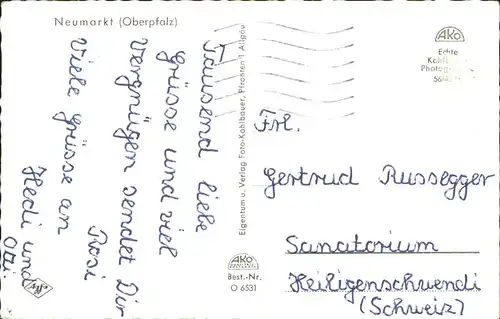 Neumarkt (Oberpfalz)
Tausend liebe
Grüsse und viel
Vergnügen sendet Dir
Rosi
Viele Grüsse an
Hedi und
Otti.
Agfa
Eigentum u. Verlag Foto-Kohlbauer, Pfronten 1 Allgäu
AKO
Echte
AKO
Best.-Nr.
O 6531
Frl.
Gertrud Russegger
Sanatorium
Heiligenschwendi
(Schweiz)